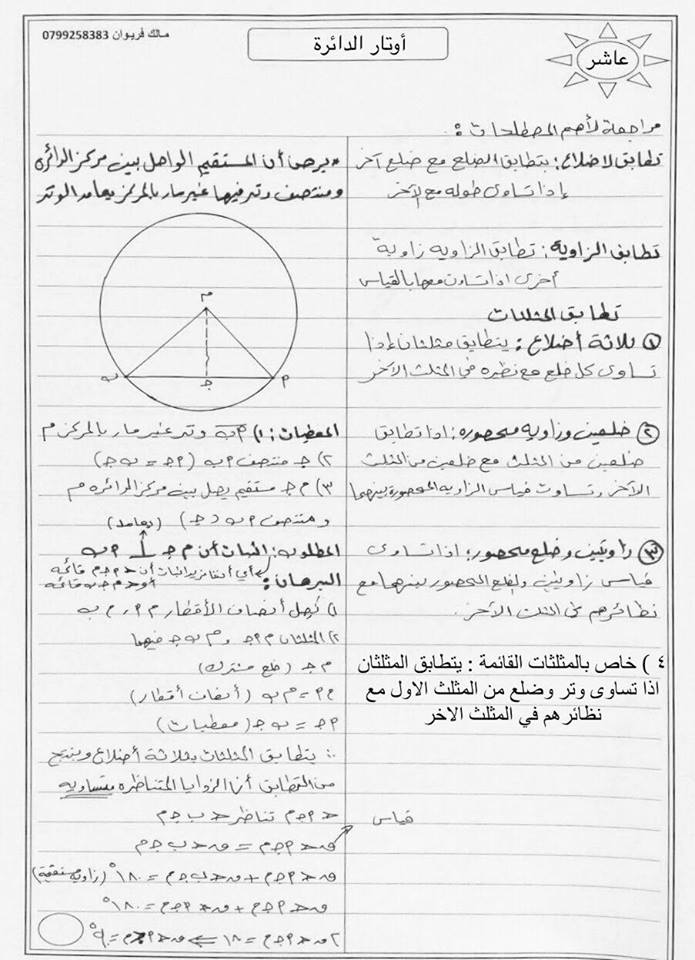 مالك فريوان 0799258383
أوتار الدائرة
عاشر
مراجعة لأهم المصطلحات :
تطابق الاضلاع : يتطابق الضلع مع ضلع آخر
إذا تساوى طوله مع الآخر
تطابق الزاويه : تطابق الزاويه زاوية
أخرى اذا تساوت معها بالقياس
تطابق المثلثات
① ثلاثة أضلاع : يتطابق مثلثان إذا
تساوى كل ضلع مع نظيره في المثلث الآخر
② ضلعين وزاويه محصوره : اذا تطابق
ضلعين من المثلث مع ضلعين من المثلث
الآخر وتساوت قياس الزاويه المحصورة بينهما
③ زاويتين وضلع محصور : اذا تساوى
قياس زاويتين والضلع المحصور بينهما مع
نظائرهم في المثلث الآخر.
٤ ) خاص بالمثلثات القائمة : يتطابق المثلثان
اذا تساوى وتر وضلع من المثلث الاول مع
نظائرهم في المثلث الاخر
قياس
* برهن أن المستقيم الواصل بين مركز الدائره
ومنتصف وتر فيها غير مار بالمركز يعامد الوتر
م
ب
جـ
أ
المعطيات : ١) أ ب وتر غير مار بالمركز م
٢) جـ منتصف أ ب ( أ جـ = ب جـ )
٣) م جـ مستقيم يصل بين مركز الدائره م
و منتصف أ ب ( جـ )
(يعامد)
المطلوب : اثبات أن م جـ ⊥ أ ب
أي أننا نريد اثبات أن > أ جـ م قائمه
أو > م جـ ب قائمه
البرهان :
١) نصل أنصاف الأقطار م أ ، م ب
٢) المثلثان م أ جـ و م ب جـ فيهما
م جـ ( ضلع مشترك )
م أ = م ب ( أنصاف أقطار )
أ جـ = ب جـ ( معطيات )
∴ يتطابق المثلثات بثلاثة أضلاع وينتج
من التطابق أن الزوايا المتناظره متساويه
> أ جـ م تناظر > ب جـ م
ق > أ جـ م = ق > ب جـ م
ق > أ جـ م + ق > ب جـ م = ١٨٠° (زاويه مستقيمة)
ق > أ جـ م + ق > أ جـ م = ١٨٠°
٢ ق > أ جـ م = ١٨٠ ⇐ ق > أ جـ م = ٩٠°